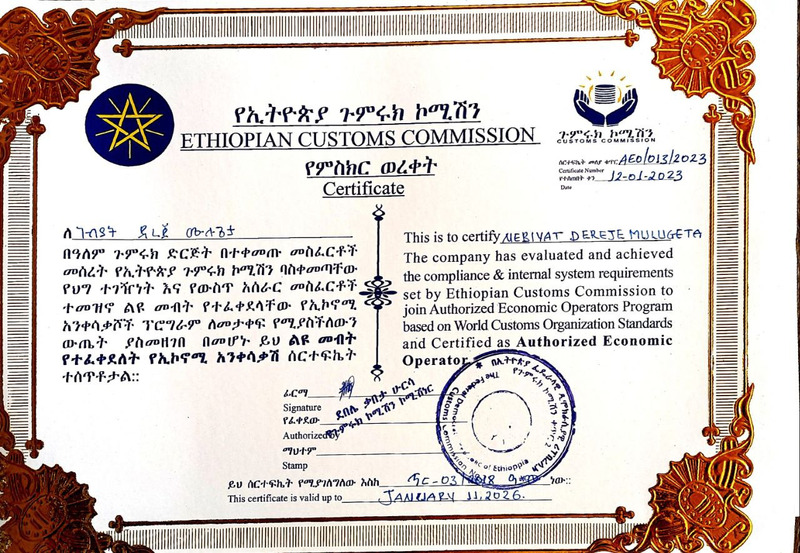 የኢትዮጵያ ጉምሩክ ኮሚሽን
ETHIOPIAN CUSTOMS COMMISSION
የምስክር ወረቀት
Certificate
ጉምሩክ ኮሚሽን
CUSTOMS COMMISSION
ሰርተፍኬት መለያ ቁጥር AEO/013/2023
Certificate Number
የተሰጠበት ቀን 12-01-2023
Date
ለ ነብያት ደረጀ ሙሉጌታ
በዓለም ጉምሩክ ድርጅት በተቀመጡ መስፈርቶች
መሰረት የኢትዮጵያ ጉምሩክ ኮሚሽን ባስቀመጣቸው
የህግ ተገዥነት እና የውስጥ አሰራር መስፈርቶች
ተመዝኖ ልዩ መብት የተፈቀደላቸው የኢኮኖሚ
አንቀሳቃሾች ፕሮግራም ለመታቀፍ የሚያስችለውን
ውጤት ያስመዘገበ በመሆኑ ይህ ልዩ መብት
የተፈቀደለት የኢኮኖሚ አንቀሳቃሽ ሰርተፍኬት
ተሰጥቶታል::
This is to certify NEBIYAT DEREJE MULUGETA
The company has evaluated and achieved
the compliance & internal system requirements
set by Ethiopian Customs Commission to
join Authorized Economic Operators Program
based on World Customs Organization Standards
and Certified as Authorized Economic
Operator.
ፊርማ
Signature
ደበሌ ቃበታ ሁርሳ
የፈቀደው
የጉምሩክ ኮሚሽን ኮሚሽነር
Authorized By
ማህተም
Stamp
ይህ ሰርተፍኬት የሚያገለግለው እስከ ነው::
This certificate is valid up to JANUARY 11, 2026.